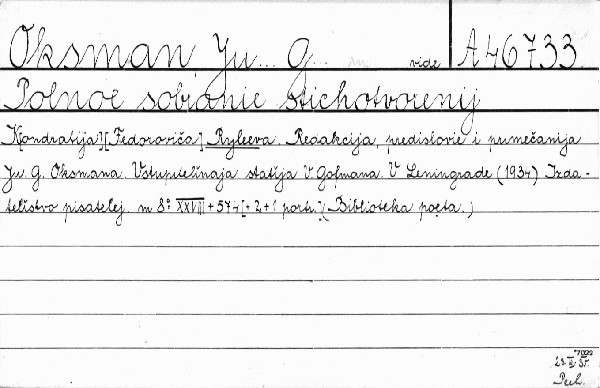 Oksman, Ju... G... vide A 46733
Polnoe sobranie stichotvorenij
K[ondratija] [Fedoroviča] Ryleeva. Redakcija, predislovie i primečanija
Ju. G. Oksmana. Vstupitel'naja statija V. Gofmana. V Leningrade (1934) Izda-
tel'stvo pisatelej. m 8° XXVIII + 574 [+ 2 + 1 portr.] (Biblioteka poeta.)